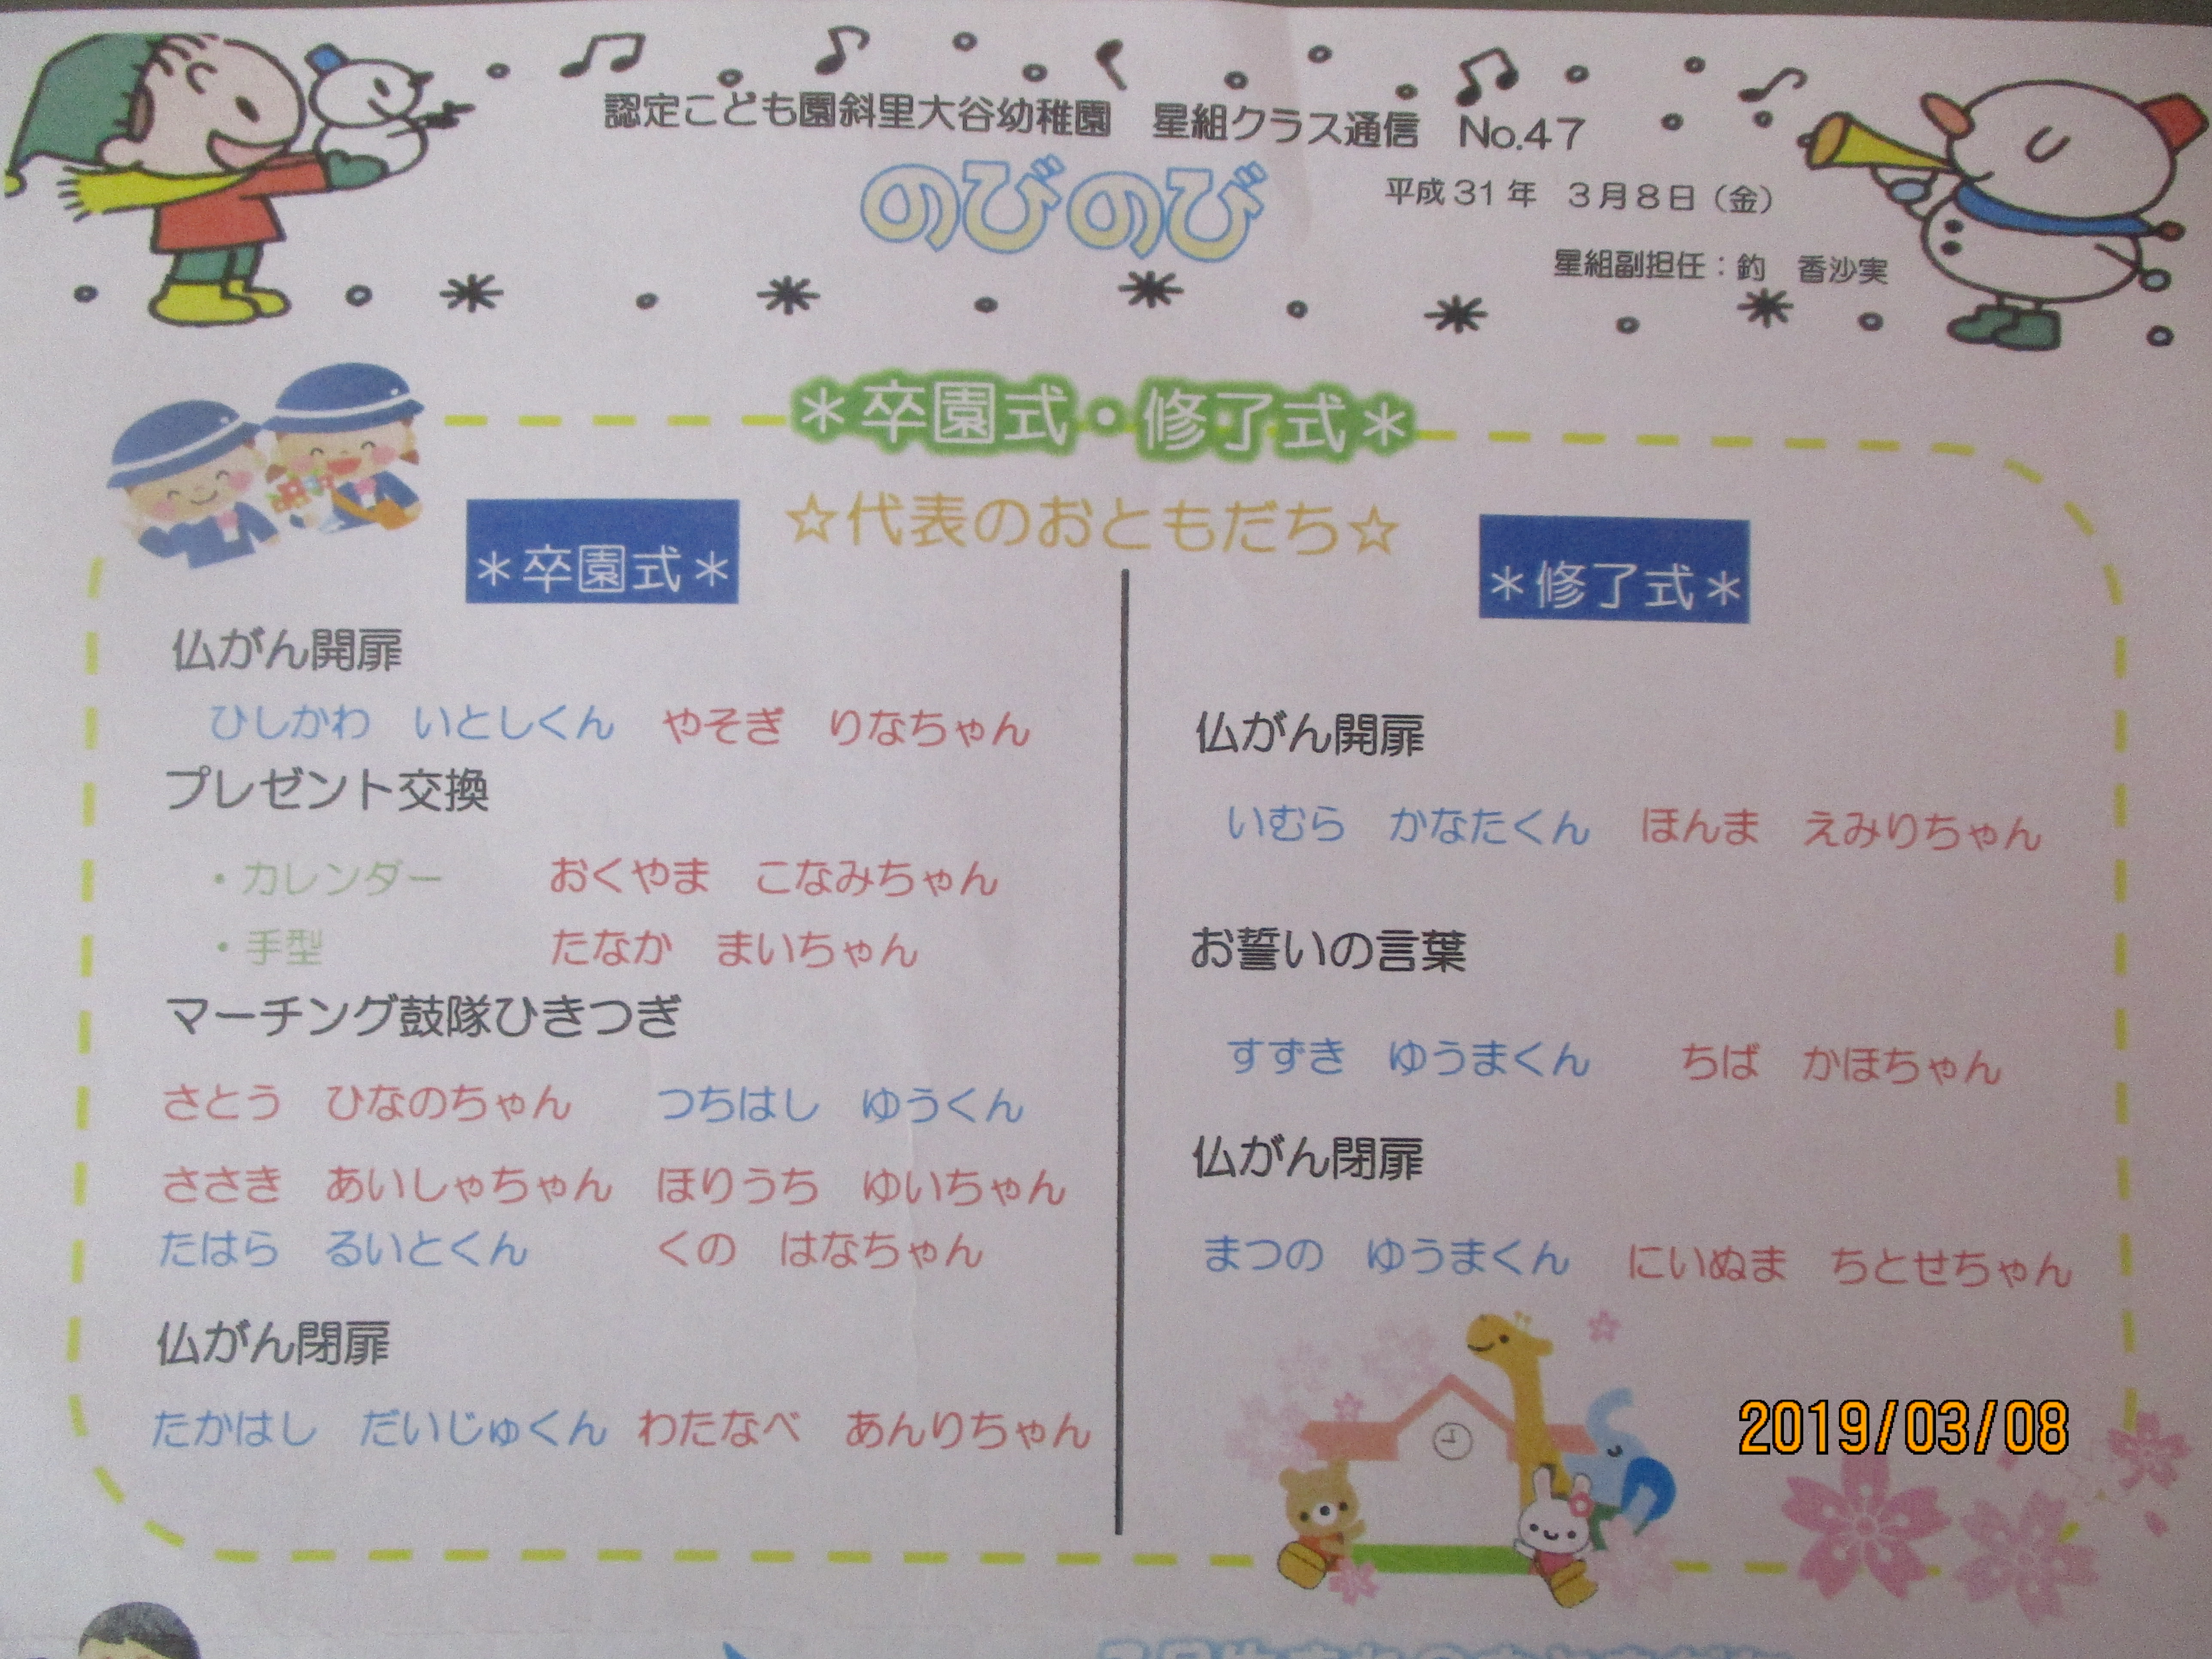 認定こども園斜里大谷幼稚園 星組クラス通信 No.47
のびのび
平成31年 3月8日（金）
星組副担任：釣 香沙実
＊卒園式・修了式＊
☆代表のおともだち☆
＊卒園式＊
仏がん開扉
ひしかわ いとしくん やそぎ りなちゃん
プレゼント交換
・カレンダー おくやま こなみちゃん
・手型 たなか まいちゃん
マーチング鼓隊ひきつぎ
さとう ひなのちゃん つちはし ゆうくん
ささき あいしゃちゃん ほりうち ゆいちゃん
たはら るいとくん くの はなちゃん
仏がん閉扉
たかはし だいじゅくん わたなべ あんりちゃん
＊修了式＊
仏がん開扉
いむら かなたくん ほんま えみりちゃん
お誓いの言葉
すずき ゆうまくん ちば かほちゃん
仏がん閉扉
まつの ゆうまくん にいぬま ちとせちゃん
2019/03/08